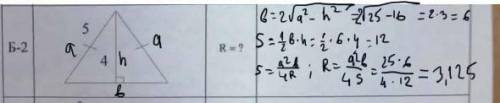 Б-2
5
a
4
h
a
b
R = ?
b = 2√a² - h² = 2√25 - 16 = 2·3 = 6
S = 1/2 b·h = 1/2 · 6 · 4 = 12
S = a²b/4R ; R = a²b/4S = 25·6/4·12 = 3,125